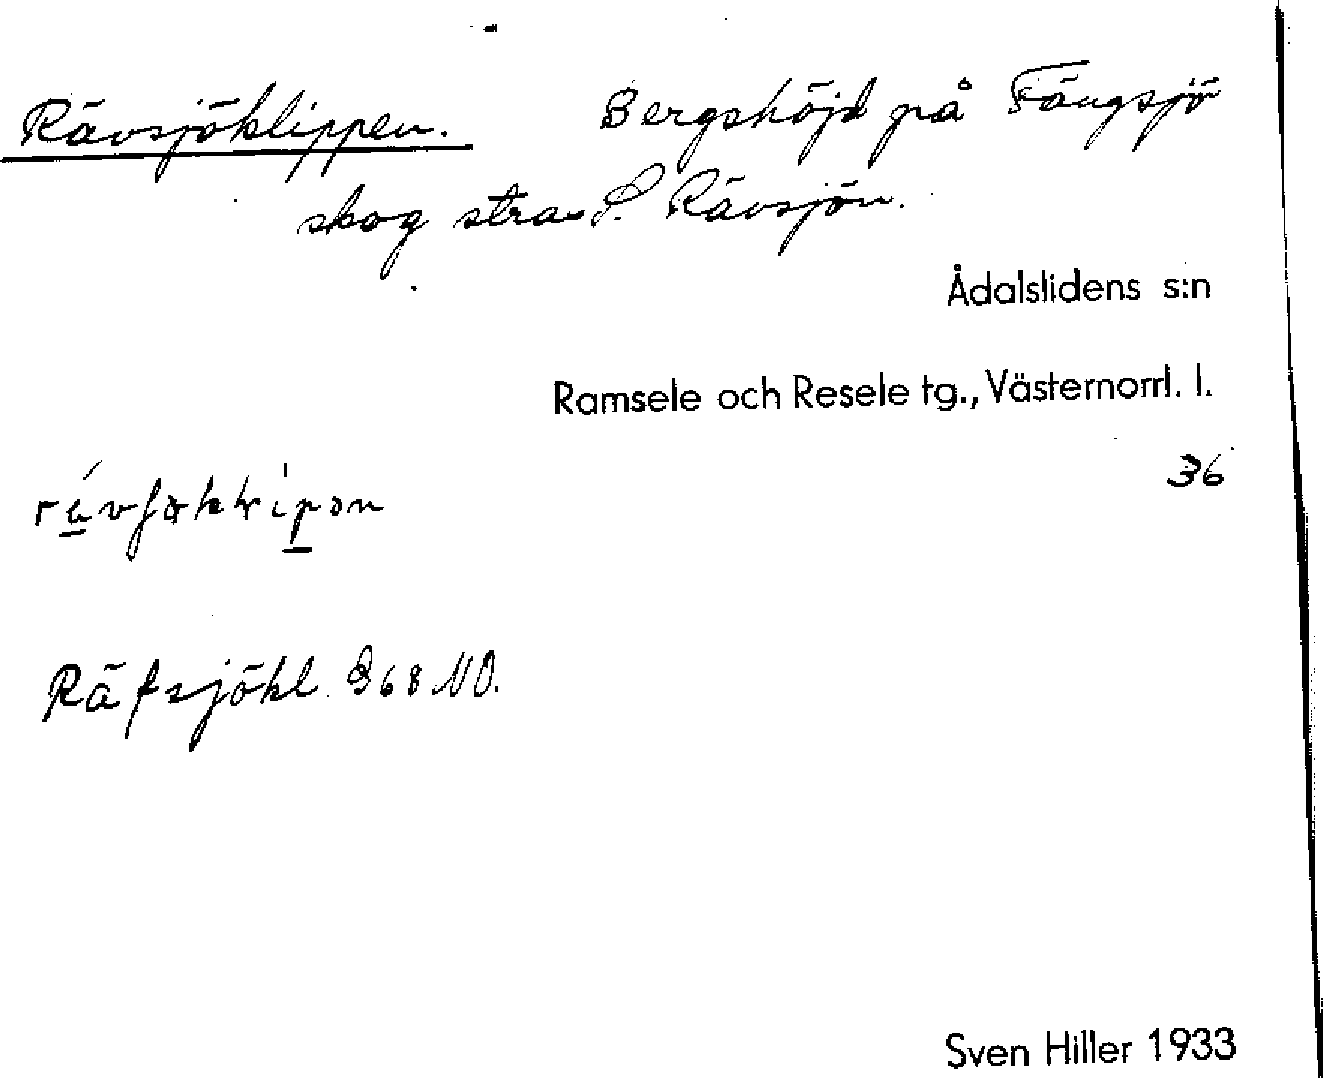 Rävsjöklippen. Bergshöjd på Fängsjö
skog strax S. Rävsjön.
Ådalslidens s:n
Ramsele och Resele tg., Västernorrl. l.
36
Räfsjökl. G68 NO.
Sven Hiller 1933